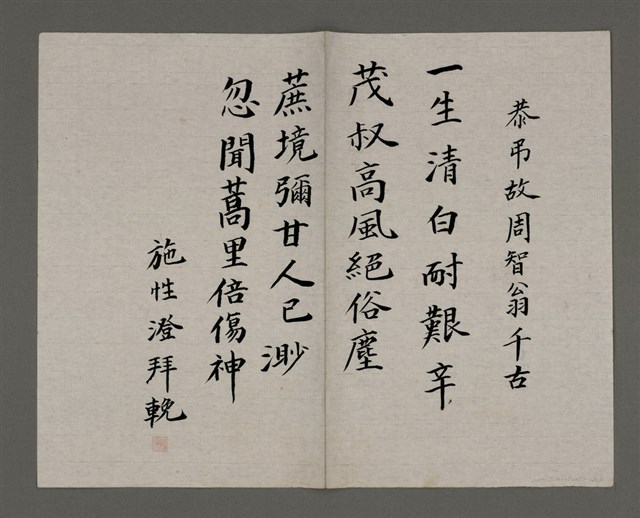 恭弔故周智翁千古
一生清白耐艱辛
茂叔高風絕俗塵
蔗境彌甘人已渺
忽聞蒿里倍傷神
施性澄拜輓